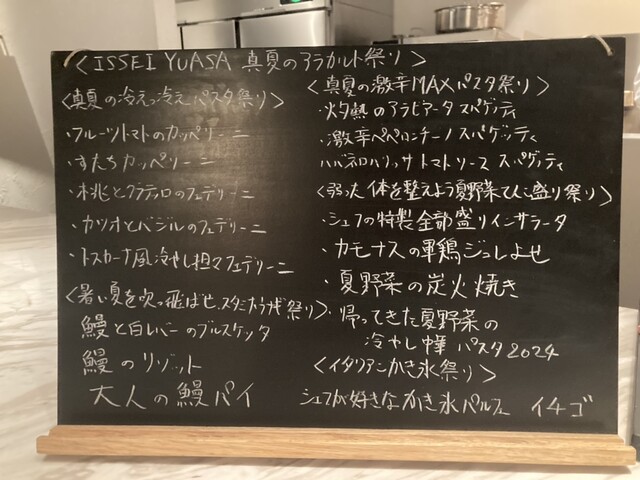 ＜ISSEI YUASA 真夏のアラカルト祭り＞
＜真夏の冷えっ冷えパスタ祭り＞
・フルーツトマトのカッペリーニ
・すだちカッペリーニ
・桃とクラティッロのフェデリーニ
・カツオとバジルのフェデリーニ
・トスカーナ風冷やし担々フェデリーニ
＜暑い夏を吹っ飛ばせ、スタミナうなぎ祭り＞
鰻と白レバーのブルスケッタ
鰻のリゾット
大人の鰻パイ
＜真夏の激辛MAXパスタ祭り＞
・灼熱のアラビアータスパゲッティ
・激辛ペペロンチーノスパゲッティ
ハバネロハリッサトマトソーススパゲッティ
＜弱った体を整えよう夏野菜てんこ盛り祭り＞
・シェフの特製全部盛りインサラータ
・カモナスの軍鶏ジュレよせ
・夏野菜の炭火焼き
・帰ってきた夏野菜の
冷やし中華パスタ2024
＜イタリアンかき氷祭り＞
シェフが好きなかき氷パルフェ イチゴ